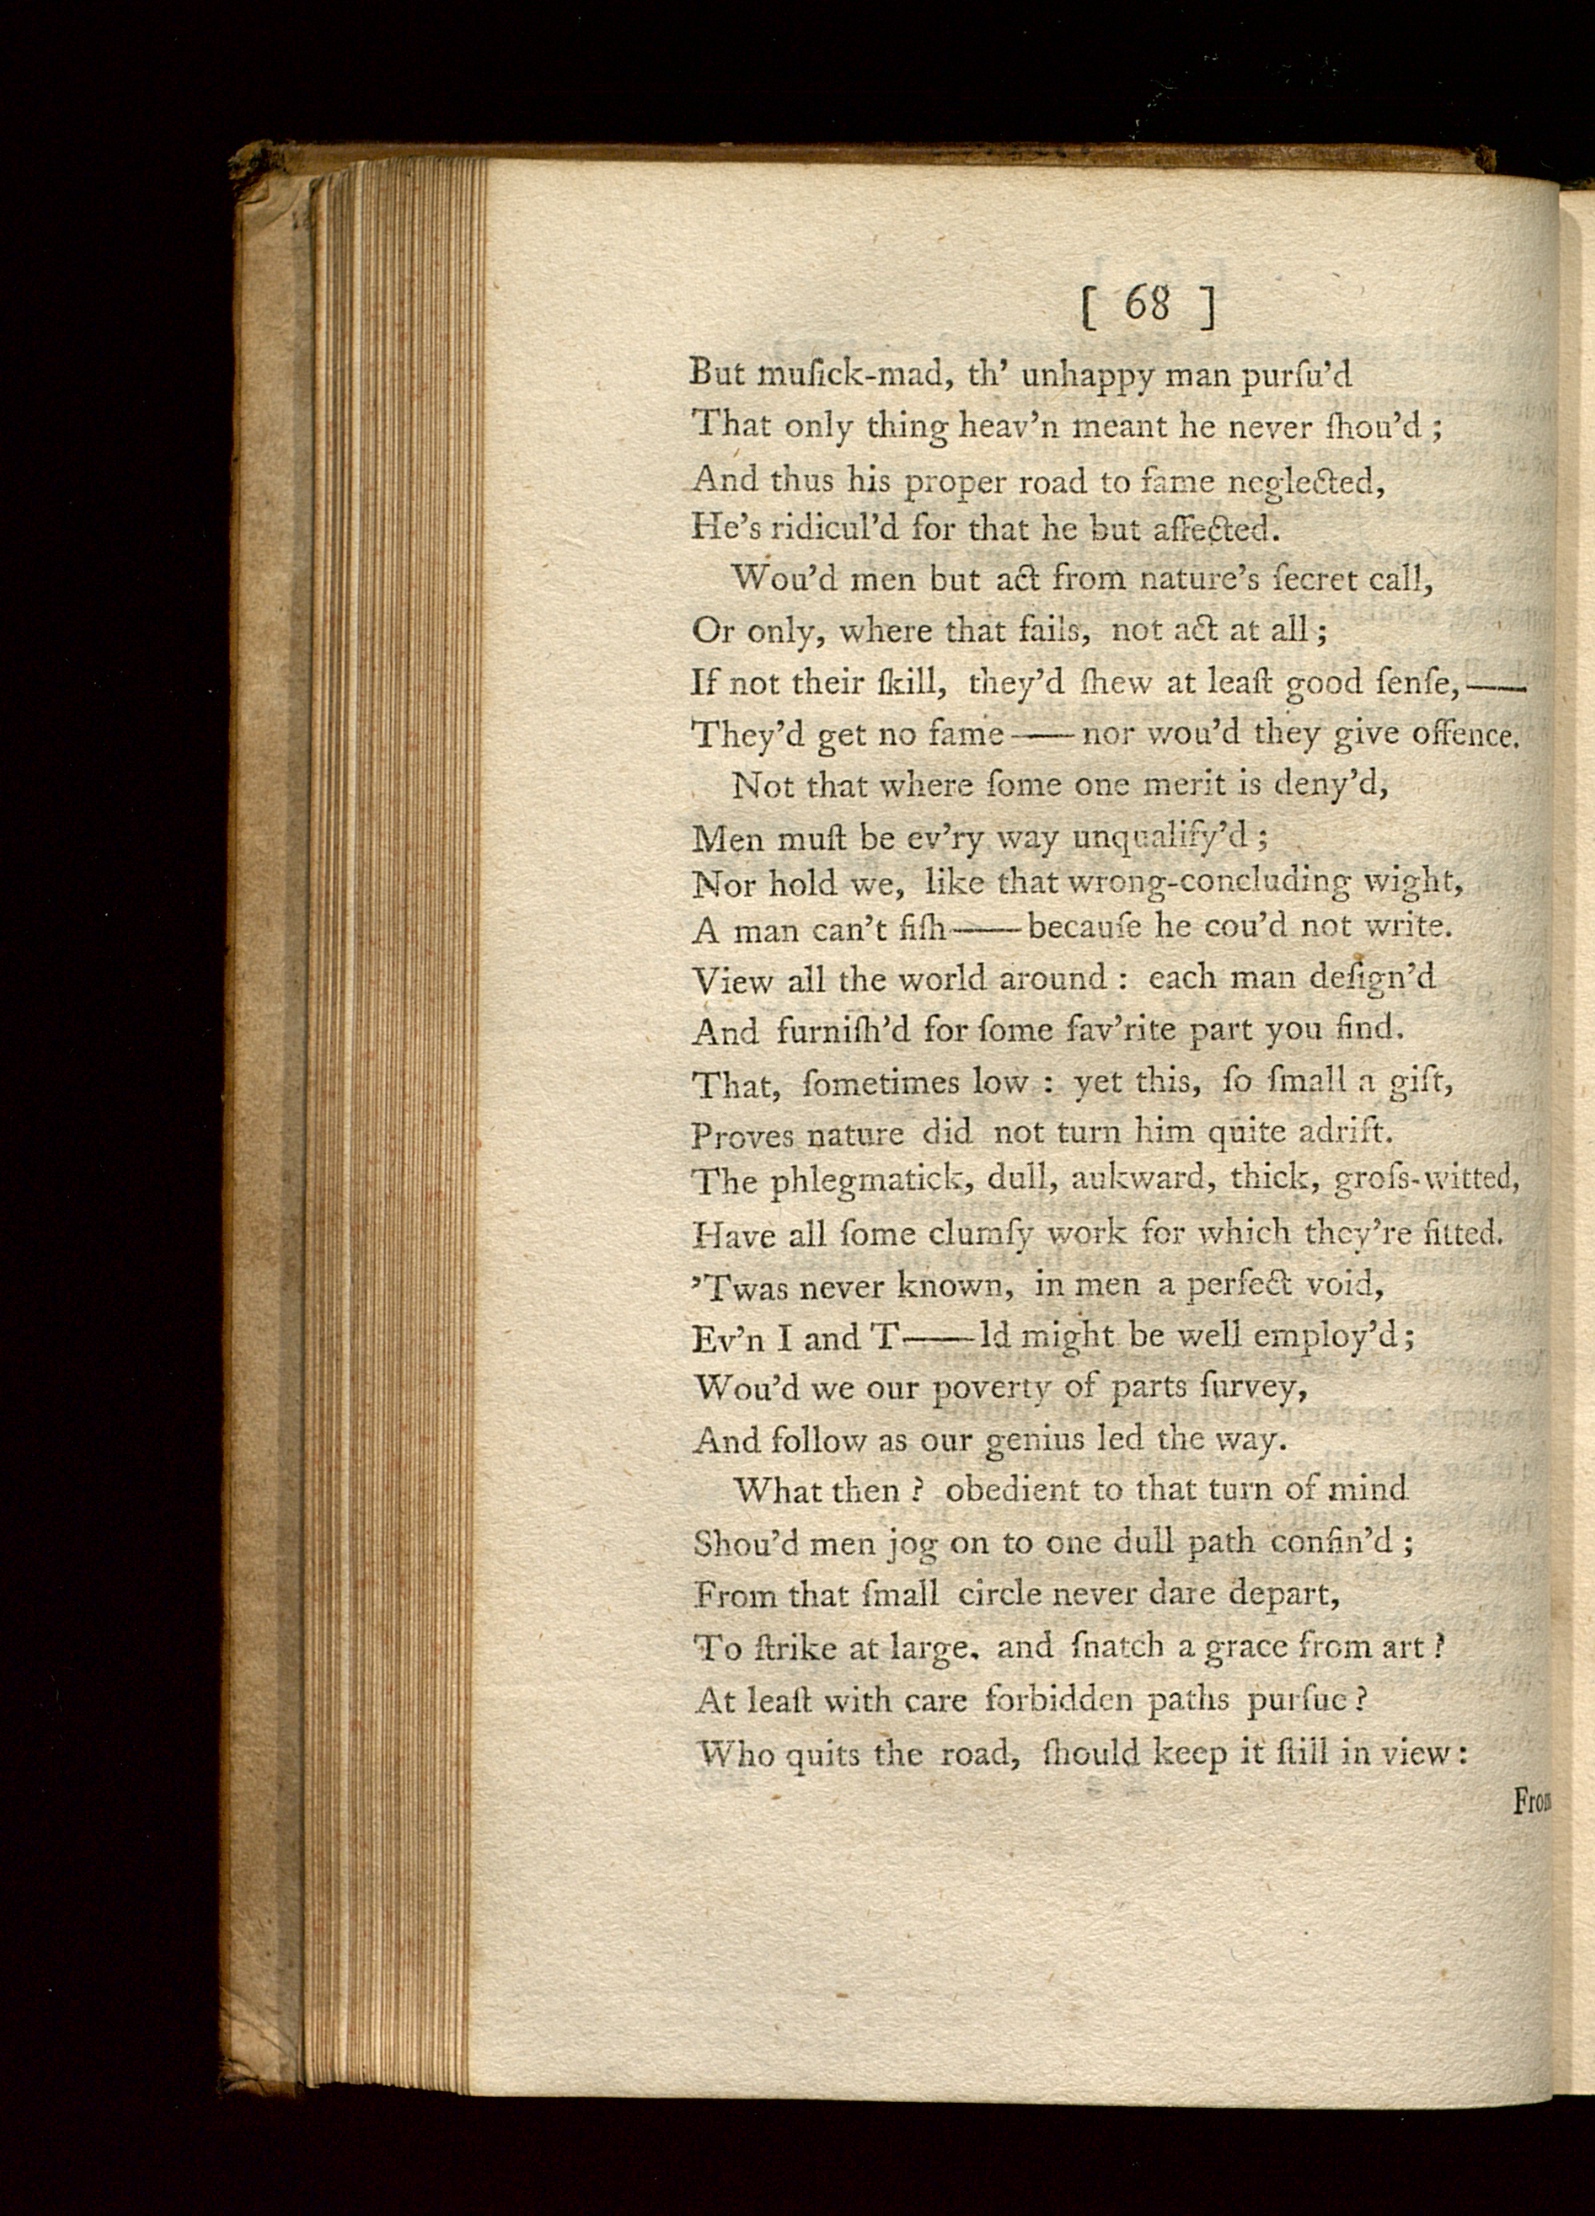 [ 68 ]
But muſick-mad, th' unhappy man purſu'd
That only thing heav'n meant he never ſhou'd ;
And thus his proper road to fame neglected,
He's ridicul'd for that he but affected.
Wou'd men but act from nature's ſecret call,
Or only, where that fails, not act at all ;
If not their ſkill, they'd ſhew at leaſt good ſenſe,——
They'd get no fame——nor wou'd they give offence.
Not that where ſome one merit is deny'd,
Men muſt be ev'ry way unqualify'd ;
Nor hold we, like that wrong-concluding wight,
A man can't fiſh——becauſe he cou'd not write.
View all the world around : each man deſign'd
And furniſh'd for ſome fav'rite part you find.
That, ſometimes low : yet this, ſo ſmall a gift,
Proves nature did not turn him quite adrift.
The phlegmatick, dull, aukward, thick, groſs-witted,
Have all ſome clumſy work for which they're fitted.
'Twas never known, in men a perfect void,
Ev'n I and T——ld might be well employ'd ;
Wou'd we our poverty of parts ſurvey,
And follow as our genius led the way.
What then ? obedient to that turn of mind
Shou'd men jog on to one dull path confin'd ;
From that ſmall circle never dare depart,
To ſtrike at large. and ſnatch a grace from art ?
At leaſt with care forbidden paths purſue ?
Who quits the road, ſhould keep it ſtill in view :
From